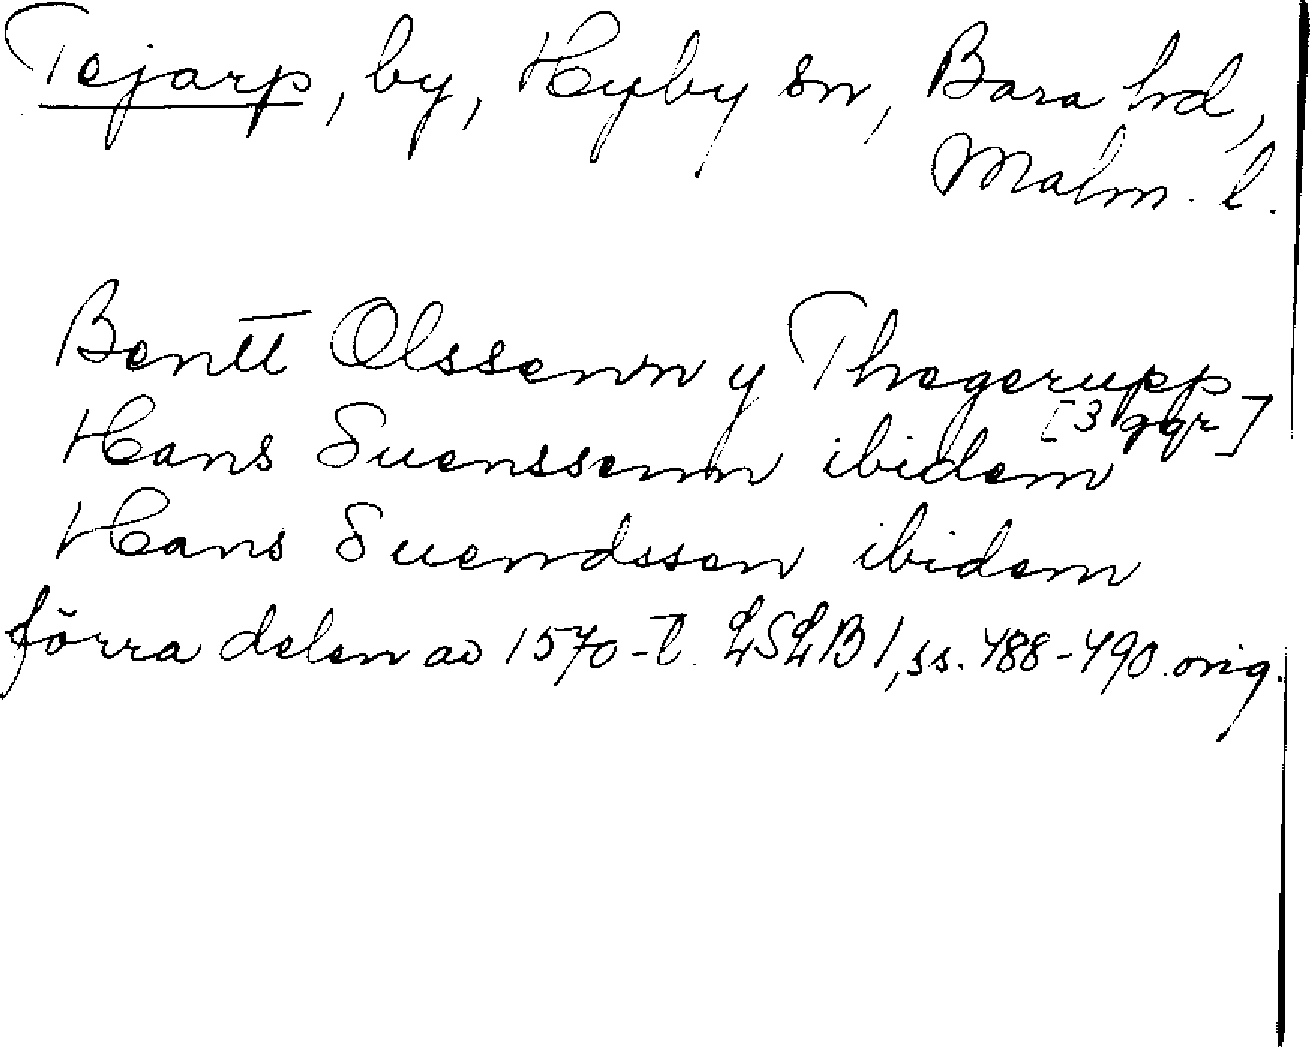 Tejarp, by, Hyby sn, Bara hd,
Malm. l.
Bentt Olssenn y Thegerupp
[3 ggr]
Hans Suenssenn ibidem
Hans Suendssen ibidem
förra delen av 1570-t. LSLB 1, ss. 488-490. orig.